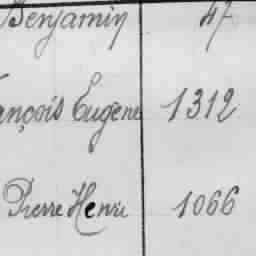 Benjamin 47
ançois Eugène 1312
Pierre Henri 1066